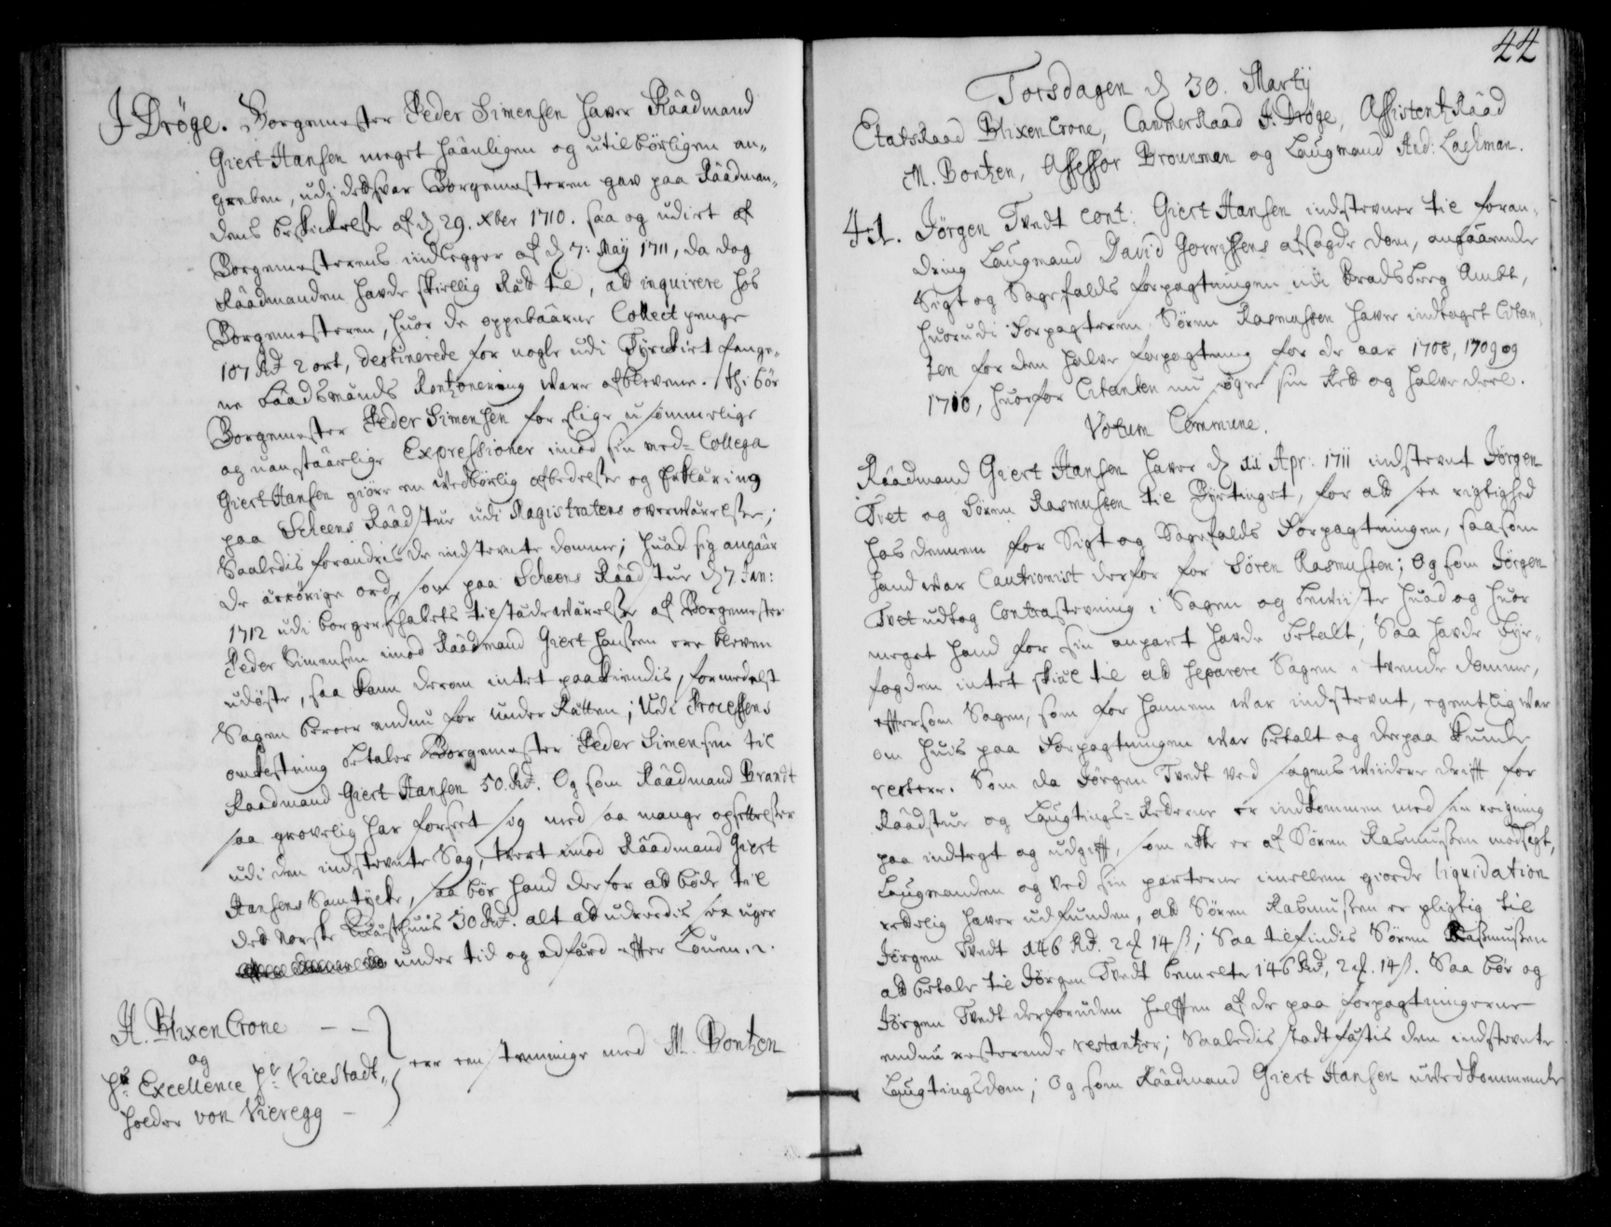 J Dröge. Borgemester Peder Simensen haver Råådmand
Giert Hansen meget håånligen og utilbörligen an-
greben, udi det svar Borgemesteren gav paa Råådman-
dens beskickelse af d 29. xber 1710. saa og udi et af
Borgemesterens indlegger af d 7. Maÿ 1711, da dog
Råådmanden hafde skiellig Rätt til, at inquirere hos
Borgemesteren, huor de oppebäärne Collect penge
107 Rd 2 ort, destinerede for nogle udi Tyrckiet fange-
ne Båådsmänds Rantzonering ware afblevene. Thi bör
Borgemester Peder Simensen for slige usömmelige
og uanstäärlige Expressioner imod sin med-Collega
Giert Hansen giöre en wedbörlig afbedelse og Erklæring
paa Scheens Råådstue udi Magistratens overwärelse;
Saaledis forandris de indstevnte domme; huad sig angäär
de ärrörige ord, som paa Scheens Rååd stue d 7 Jan:
1712 udi borgerskabets tilstädewärelse af Borgemester
Peder Simensen imod Råådmand Giert Hansen ere bleven
udöste, saa kann derom intet paakiendis, formedelst
Sagen beroer endnu for under Rätten; Udi Processens
omkostning betaler Borgemester Peder Simensen til
Raadmand Giert Hansen 50. Rd. Og som Råådmand Brandt
saa grovelig har forseet sig med saa mange opsettelser
udi den indstevnte Sag, tvert imod Råådmand Giert
Hansens Samtycke, saa bör hand derfor at böde til
det Norske 30 Rd. alt at udreedis sex uger
under tid og adfärd efter Louen.
H. Blixencrone - -
og
Hs Excellence Hr Vice Stadt-
holder von Vieregg -
ere eenstemmige med M. Bontzen
44
Torsdagen d 30. Martij
Etatsraad Blixencrone, CammerRaad J. Dröge, AssistentzRååd
M. Bontzen, Assessor Brounman og Laugmand And: Lachman.
41. Jörgen Tvedt cont: Giert Hansen indstevner til foran-
dring Laugmand David Gorrissens afsagde dom, angäärende
Sigt og Sagefalds forpagtningen udi Bradsberg Ambt,
huorudi Forpagteren Sören Rasmussen haver indtaget Citan-
ten for den halve forpagtning for de aar 1708, 1709 og
1710, huorfor Citanten nu söger sin Rett og halve deel.
Votum Commune.
Råådmand Giert Hansen haver d 11 Apr: 1711 indstevnt Jörgen
Tvet og Sören Rasmussen til Byetinget, for at see rigtighed
hos dennem for Sigt og Sagefalds Forpagtningen, saasom
hand war Cautionist derfor for Sören Rasmussen; Og som Jörgen
Tvet udtog Contrastevning i Sagen og beviiste huad og huor
meget hand for sin anpart hafde betalt; Saa hafde Bye-
fogden intet skiäl til at separere Sagen i tvende domme,
eftersom Sagen, som for hannem war indstevnt, egentlig war
om huis paa Forpagtningen war betalt og derpaa kunde
restere. Som da Jörgen Tvedt ved sagens widere drifft for
Råådstue og Laugtings-Retterne er indkommen med sin reigning
paa indtegt og udgifft, som icke er af Sören Rasmussen modsagt,
Laugmanden og ved sin parterne imellem giorde liquidation
rettelig haver udfunden, at Sören Rasmussen er pligtig til
Jörgen Tvedt 146 Rd. 2 14 ß; Saa tilfindis Sören Rasmussen
at betale til Jörgen Tvedt bemelte 146 Rd, 2 14 ß. Saa bör og
Jörgen Tvedt derforuden helfften af de paa forpagtningerne
endnu resterende restantzer; Saaledis stadfästis den indstevnte
Laugtingsdom; Og som Råådmand Giert Hansen uvedkommende